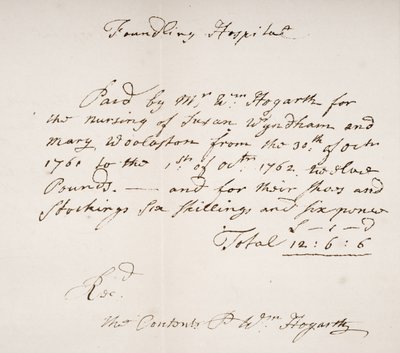 Foundling Hospital
Paid by Mr. Wm. Hogarth for
the nursing of Susan Wyndham and
Mary Woolaston from the 30th. of octr
1760 to the 1st. of octr. 1762 twelve
Pounds. — and for their shoes and
Stockings Six shillings and six pence
L – s – d
Total 12 : 6 : 6
Recd.
the Contents P Wm. Hogarth